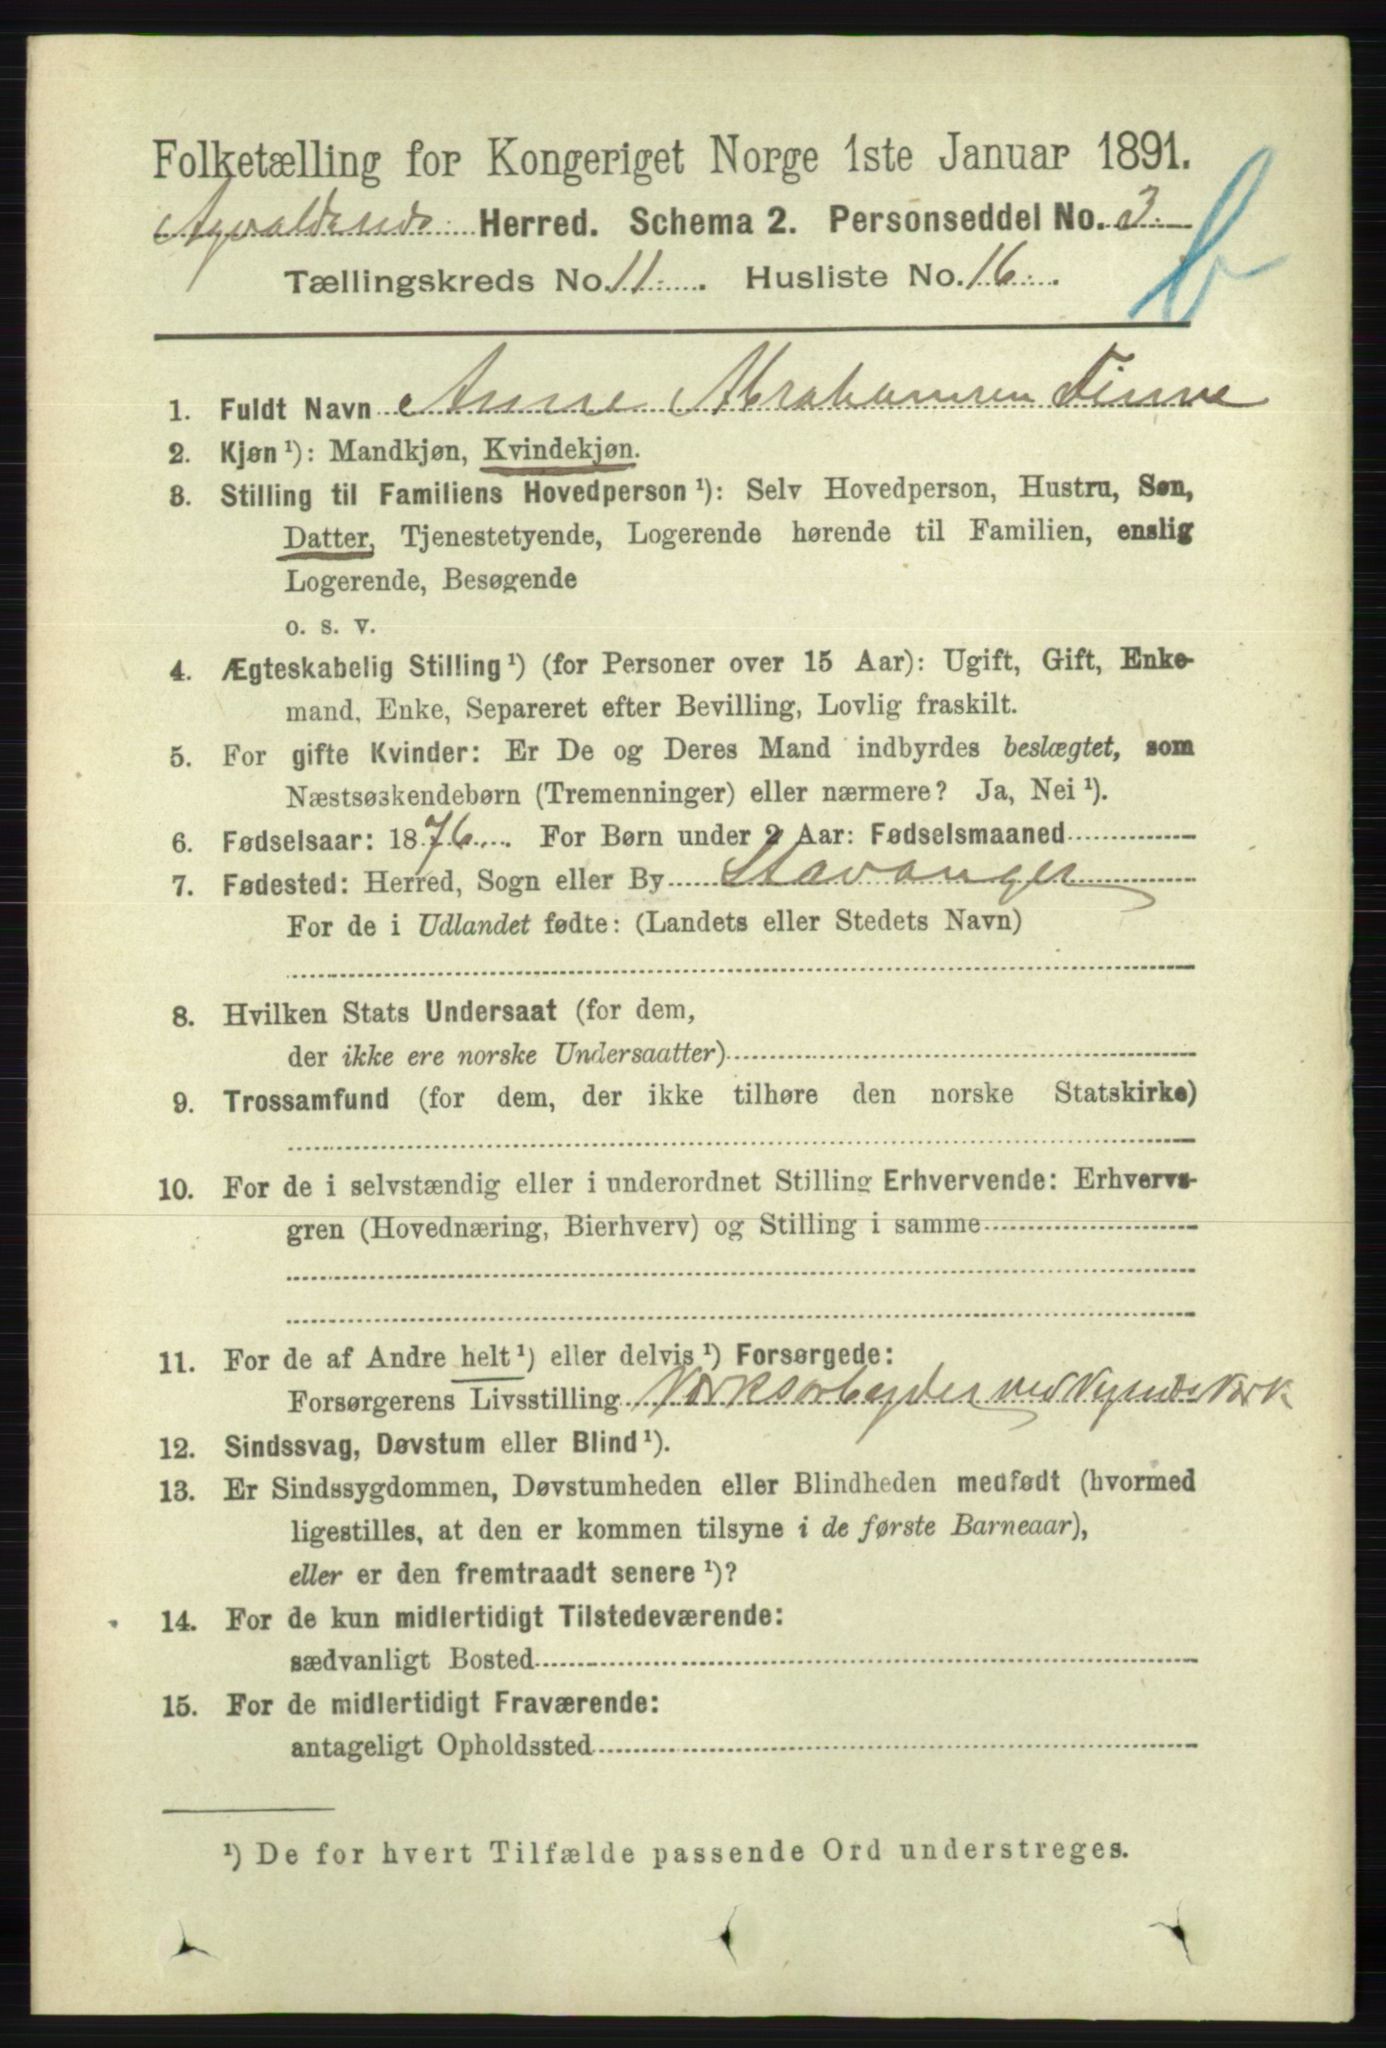 Folketælling for Kongeriget Norge 1ste Januar 1891.
Avaldsnds Herred. Schema 2. Personseddel No. 3.
Tællingskreds No. 11. Husliste No. 16.
1. Fuldt Navn Anne Abrahamsen Finne
2. Kjøn ¹): Mandkjøn, Kvindekjøn.
3. Stilling til Familiens Hovedperson ¹): Selv Hovedperson, Hustru, Søn,
Datter, Tjenestetyende, Logerende hørende til Familien, enslig
Logerende, Besøgende
o. s. v.
4. Ægteskabelig Stilling ¹) (for Personer over 15 Aar): Ugift, Gift, Enke-
mand, Enke, Separeret efter Bevilling, Lovlig fraskilt.
5. For gifte Kvinder: Er De og Deres Mand indbyrdes beslægtet, som
Næstsøskendebørn (Tremenninger) eller nærmere? Ja, Nei ¹).
6. Fødselsaar: 1876. For Børn under 2 Aar: Fødselsmaaned
7. Fødested: Herred, Sogn eller By Stavanger
For de i Udlandet fødte: (Landets eller Stedets Navn)
8. Hvilken Stats Undersaat (for dem,
der ikke ere norske Undersaatter)
9. Trossamfund (for dem, der ikke tilhøre den norske Statskirke)
10. For de i selvstændig eller i underordnet Stilling Erhvervende: Erhvervs-
gren (Hovednæring, Bierhverv) og Stilling i samme
11. For de af Andre helt ¹) eller delvis ¹) Forsørgede:
Forsørgerens Livsstilling Værksarbeyder ved Vigsnds Værk
12. Sindssvag, Døvstum eller Blind ¹).
13. Er Sindssygdommen, Døvstumheden eller Blindheden medfødt (hvormed
ligestilles, at den er kommen tilsyne i de første Barneaar),
eller er den fremtraadt senere ¹)?
14. For de kun midlertidigt Tilstedeværende:
sædvanligt Bosted
15. For de midlertidigt Fraværende:
antageligt Opholdssted
¹) De for hvert Tilfælde passende Ord understreges.